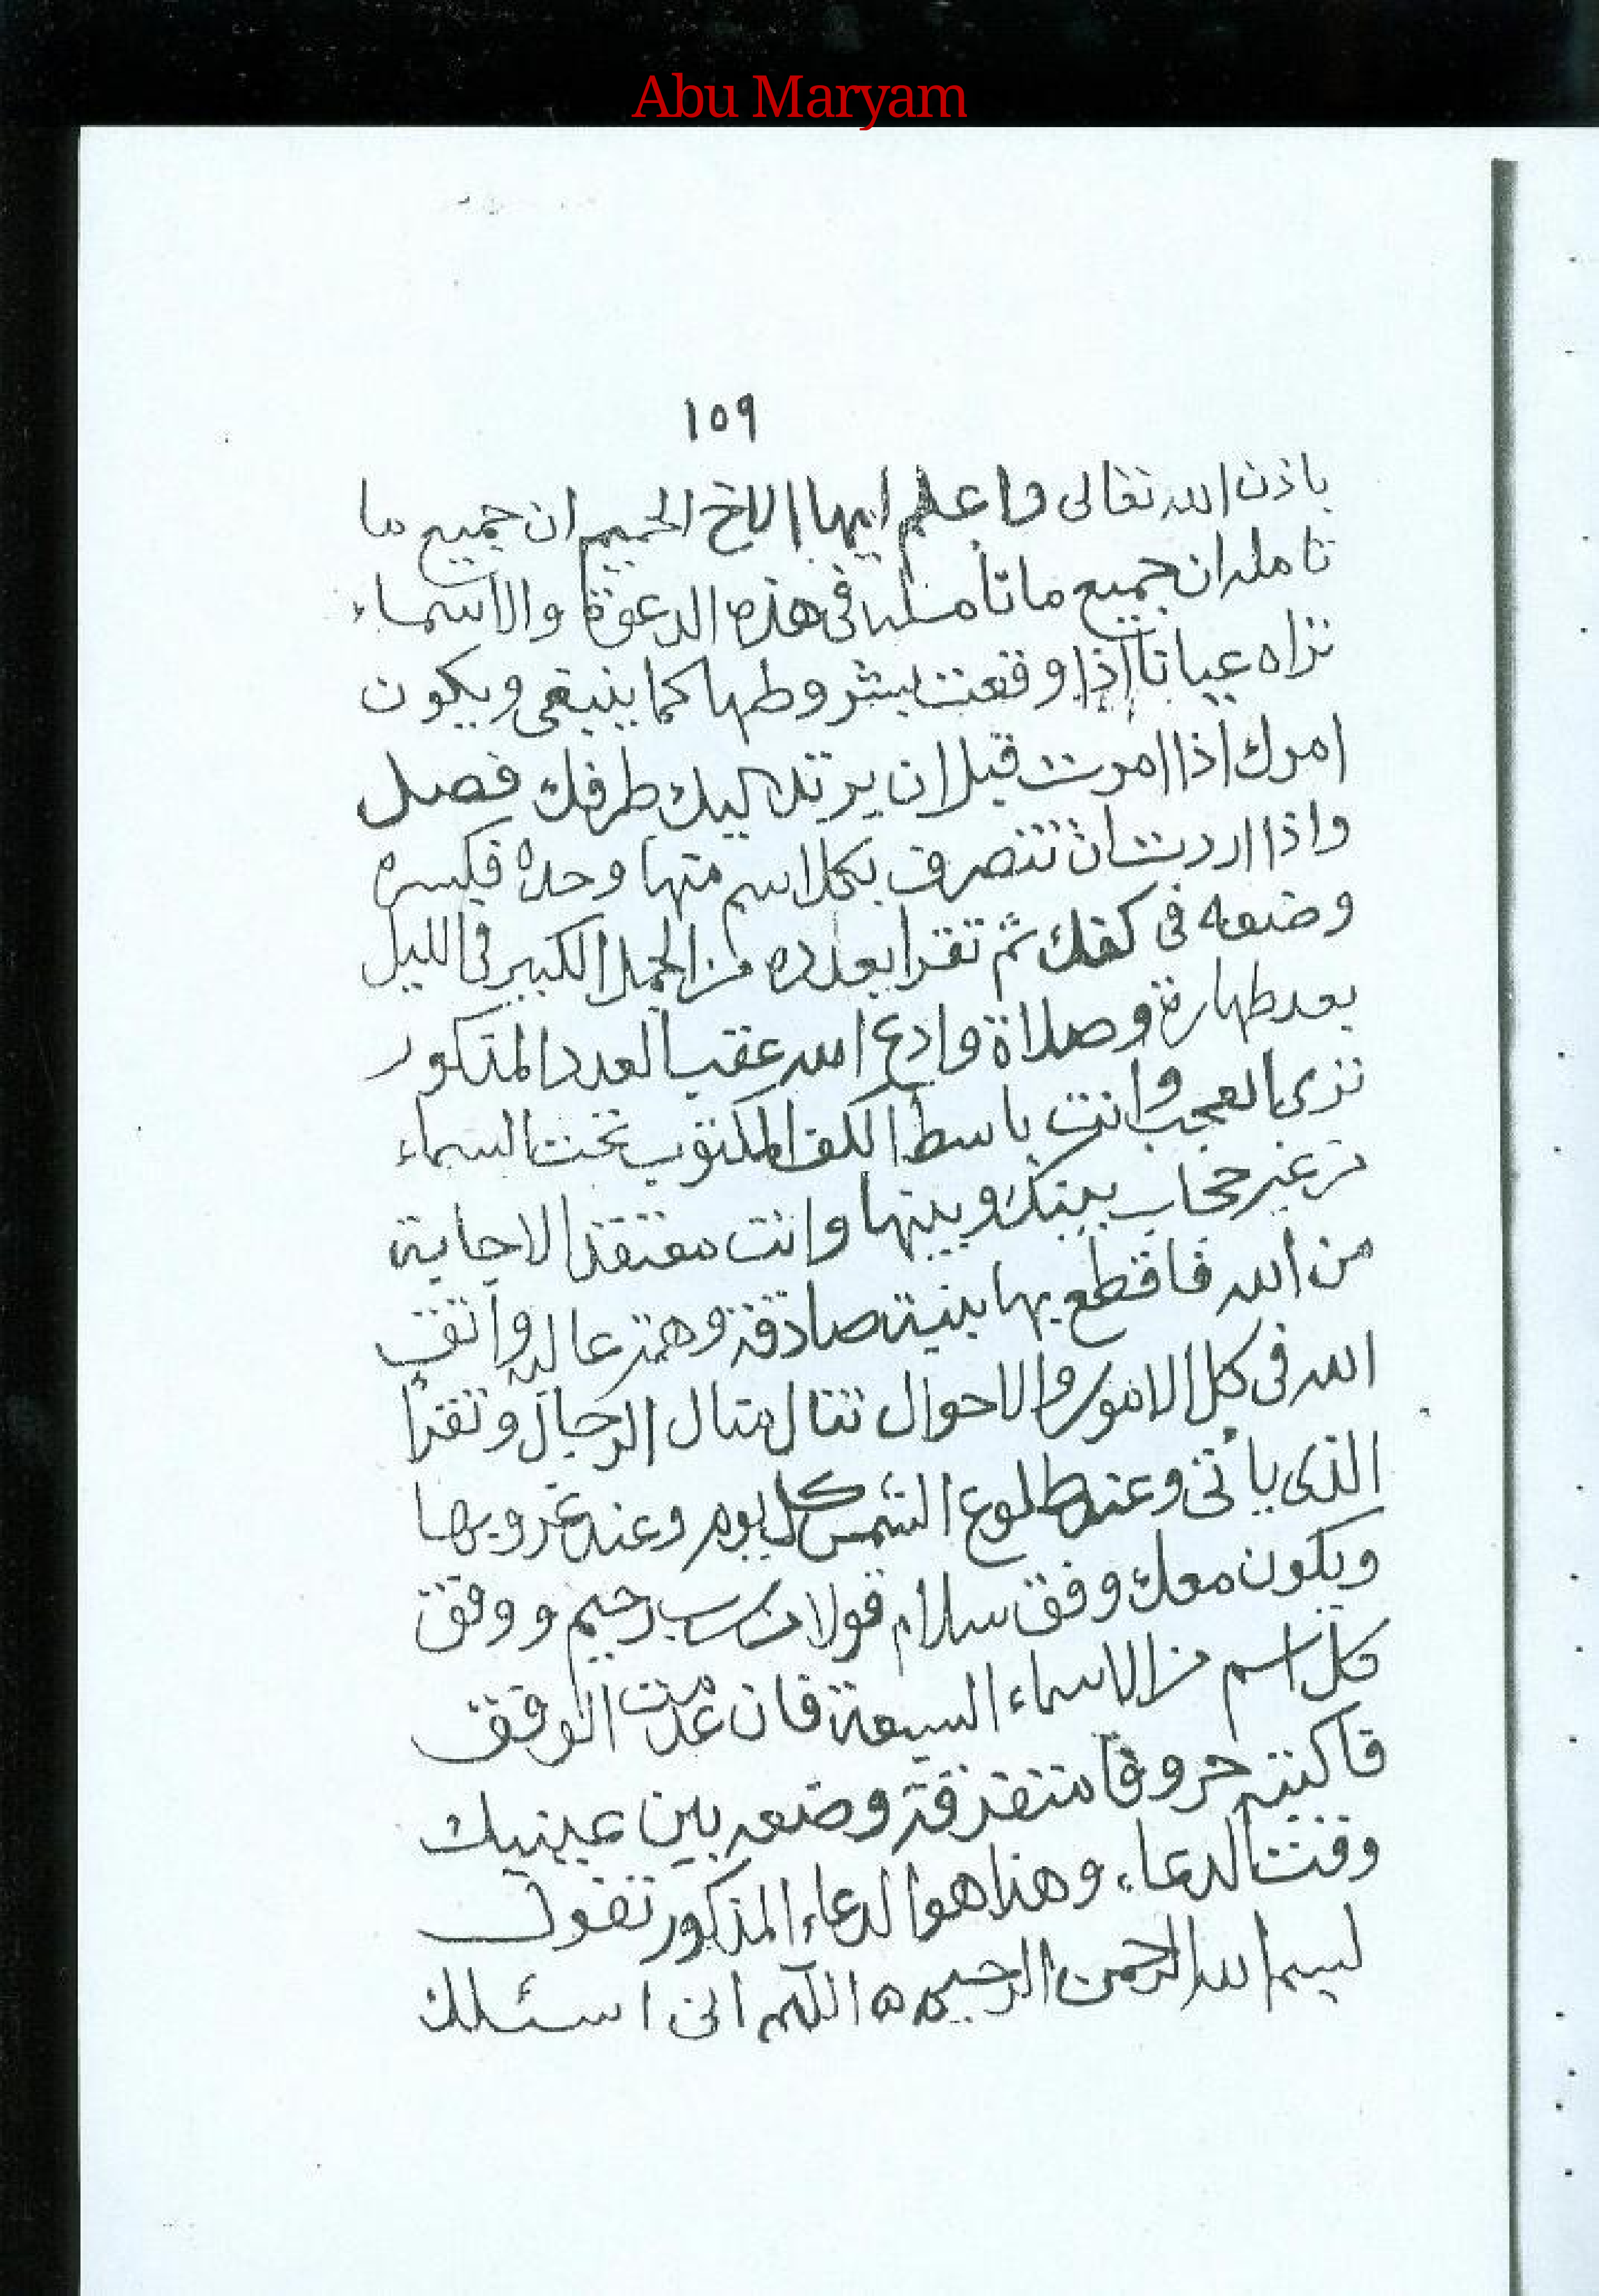 Abu Maryam
١٥٩
باذن الله تعالى واعلم ايها الاخ الحميم ان جميع ما
تامله ان جميع ما تأمله فى هذه الدعوة والاسماء
تراه عيانا اذا وقعت بشروطها كما ينبغى ويكون
امرك اذا امرت قبل ان يرتد اليك طرفك فصل
واذا اردت ان تتصرف بكل اسم منها وحده فكسره
وضعه فى كفك ثم تقرا بعدده من الجمل الكبير فى الليل
بعد طهارة وصلاة وادع الله عقب العدد المذكور
ترى العجب وانت باسط الكف المكتوب تحت السماء
من غير حجاب بينك وبينها وانت معتقد الاجابة
من الله فاقطع بها بنية صادقة وهمة عاليه واتق
الله فى كل الامور والاحوال تنال منال الرجال وتقرأ
الذى يأتى وعند طلوع الشمس كل يوم وعند غروبها
ويكون معك وفق سلام قولا من رب رحيم و وفق
كل اسم من الاسماء السبعة فان عدمت الوفق
فاكتبه حروفا متفرقة وضعه بين عينيك
وقت الدعاء وهذا هو الدعاء المذكور تقول
بسم الله الرحمن الرحيم ه اللهم انى اسئلك